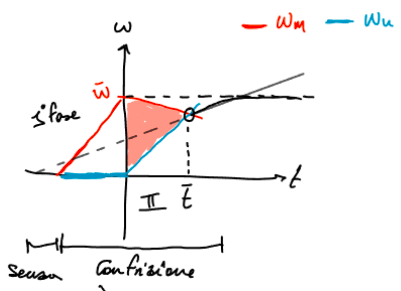 ω
— ωm — ωu
ω̄
I fase
t
II
t̄
senza
Con frizione